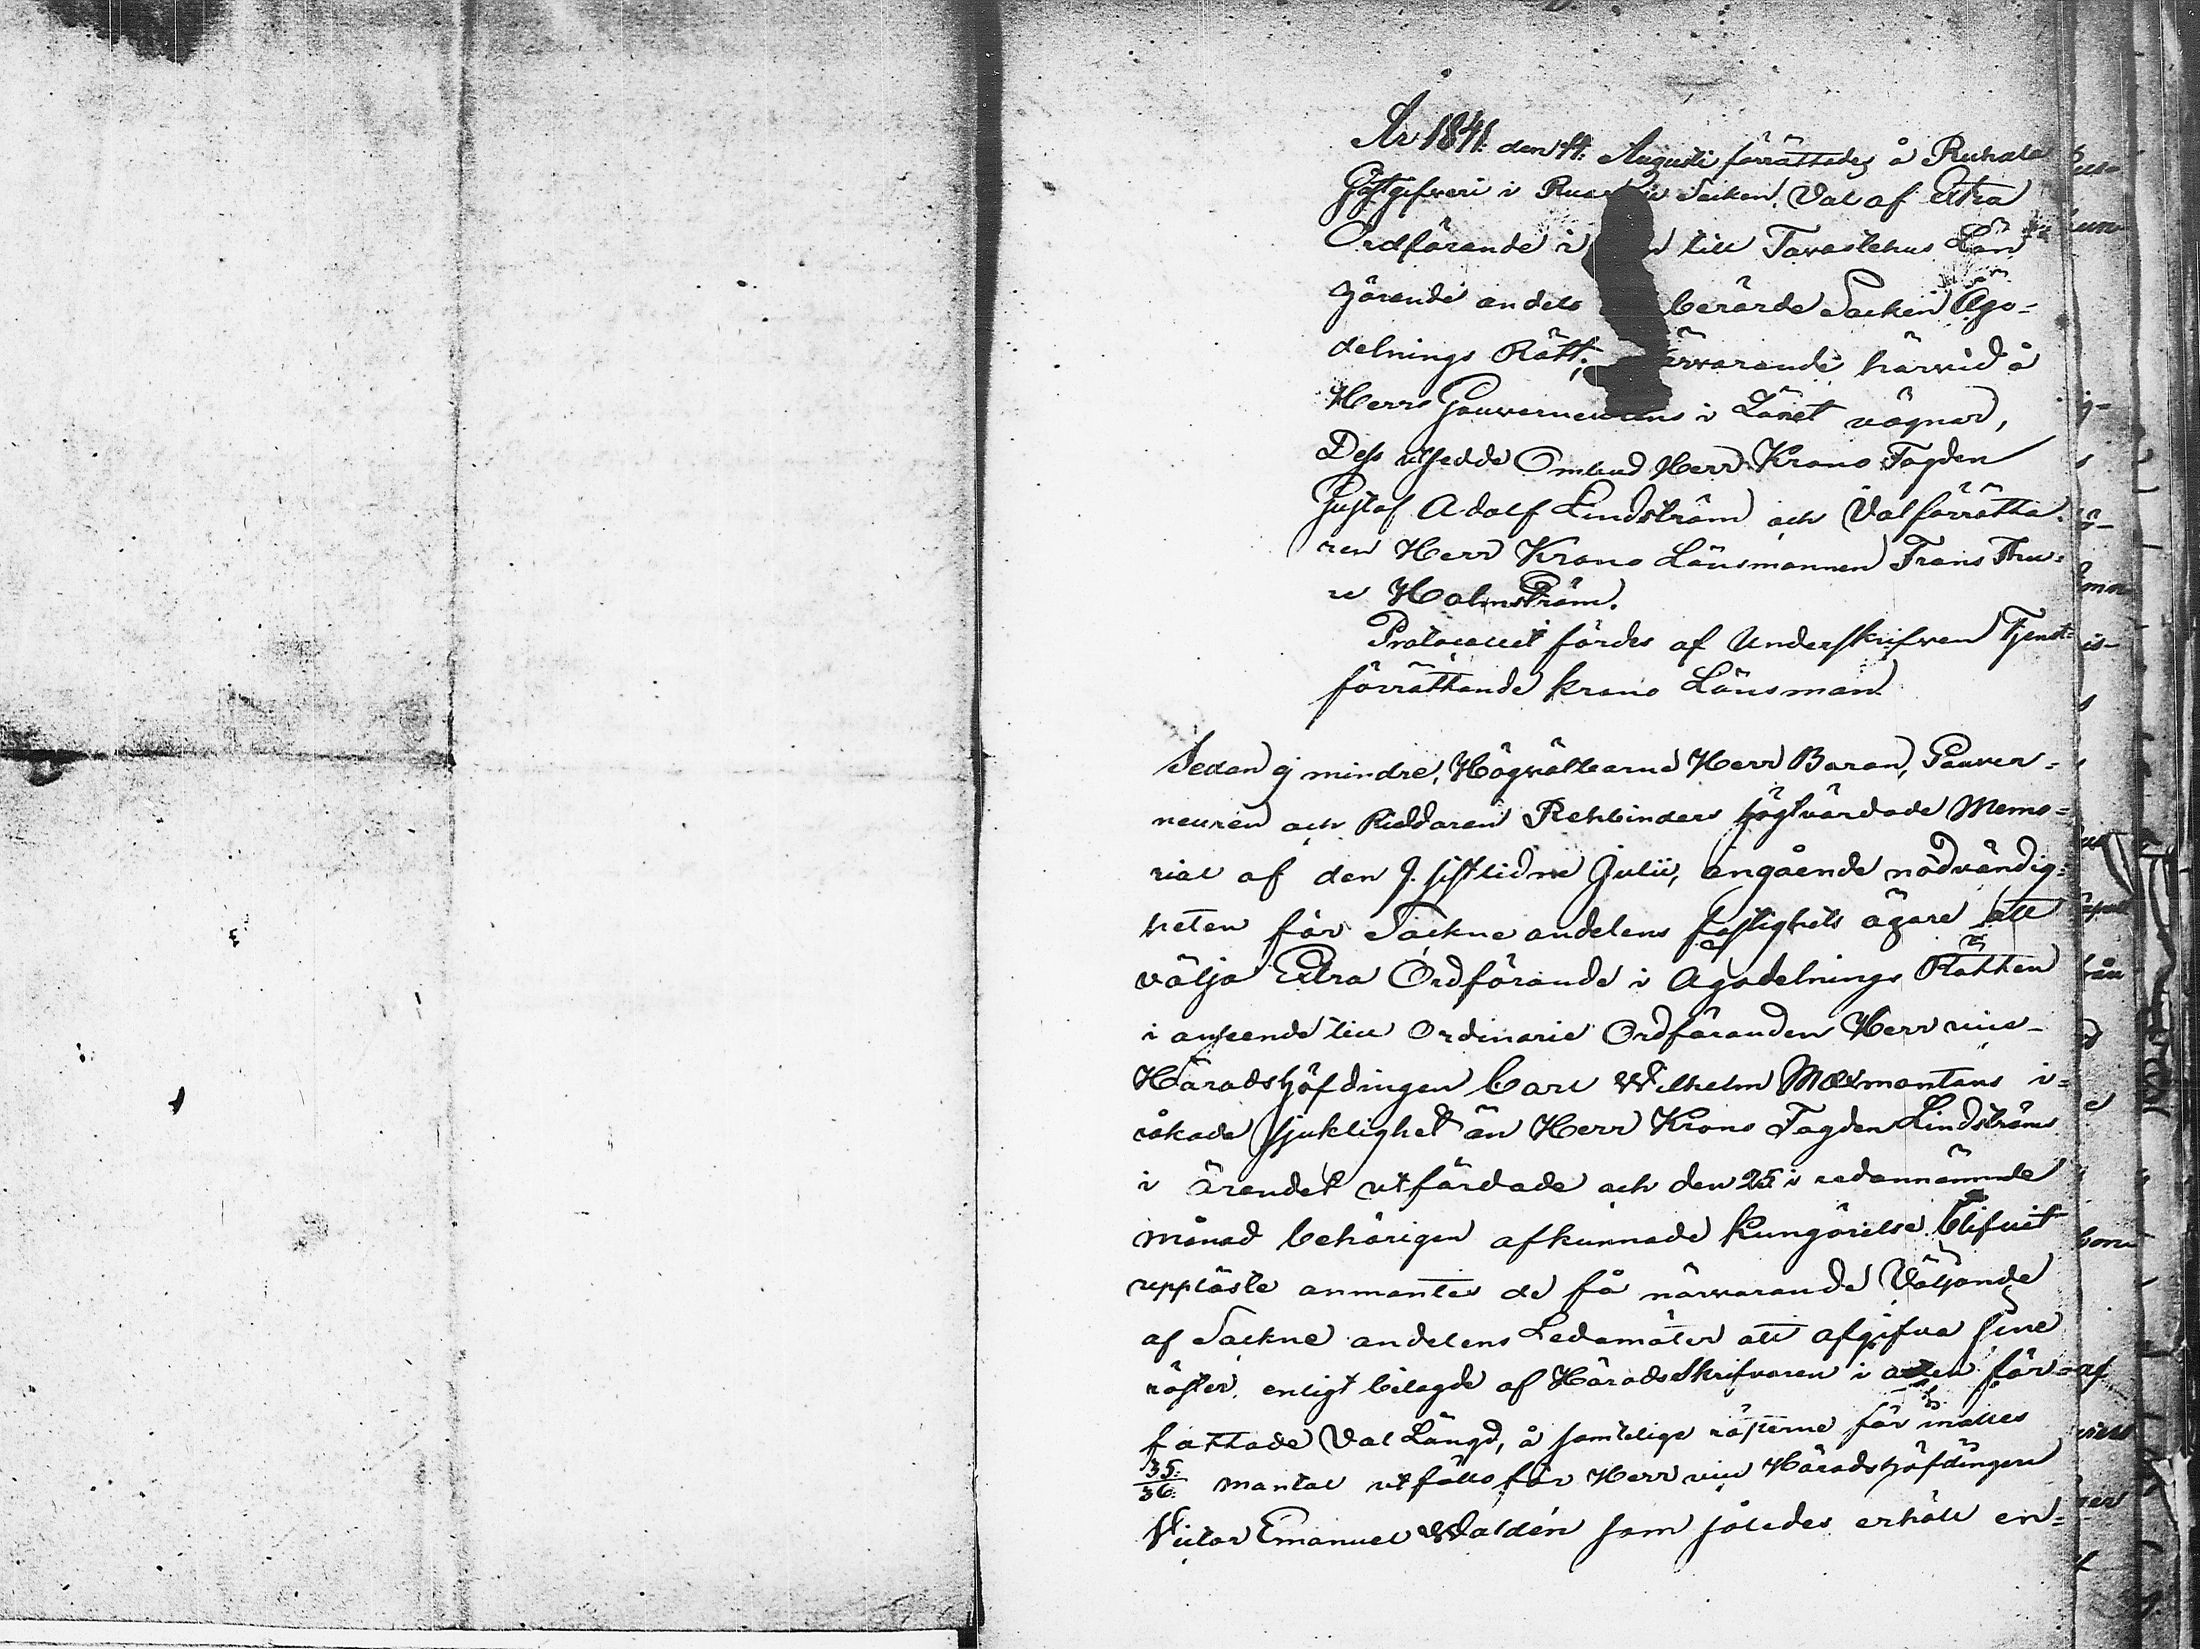 År 1841. den 4. Augusti förrättades å Ruhala
Gästgifveri i Ruo Socken, Val af Extra
Ordförande i till Tavastehus Län
görande andels berörde Socken Ägo-
delnings Rätt; närvarande härvid å
Herr Gouverneurens i Länet vägnar,
Dess utsedde Ombud Herr Krono Fogden
Gustaf Adolf Lindström och Valförrätta-
ren Herr Krono Länsmannen Frans Thu-
re Holmström.
Protocollet fördes af Underskrifven Tjenst-
förrättande krono Länsman.
Sedan ej mindre, Högvälborne Herr Baron, Gouver-
neuren och Riddaren Rehbinders högtvärdade Memo-
rial af den 9. sistlidne Julii, angående nödvändig-
heten för Sockne andelens fastighets ägare att
välja Extra Ordförande i Ägodelnings Rätten
i anseende till Ordinarie Ordföranden Herr vice
Häradshöfdingen Carl Wilhelm Malmontans i-
råkade sjuklighet än Herr Krono Fogden Lindströms
i ärendet utfärdade och den 25 i redannämnde
månad behörigen afkunnade Kungörelse blifvit
uppläste anmantes de få närvarande Väljande
af Sockne andelens Ledamöter att afgifva sine
röster, enligt bilagde af Häradsskrifvaren i orten för-
fattade Val Längd, å samtelige rösterne för inalles
35/36 mantal utföllo för Herr vice Häradshöfdingen
Victor Emanuel Waldén som således erhöll en-